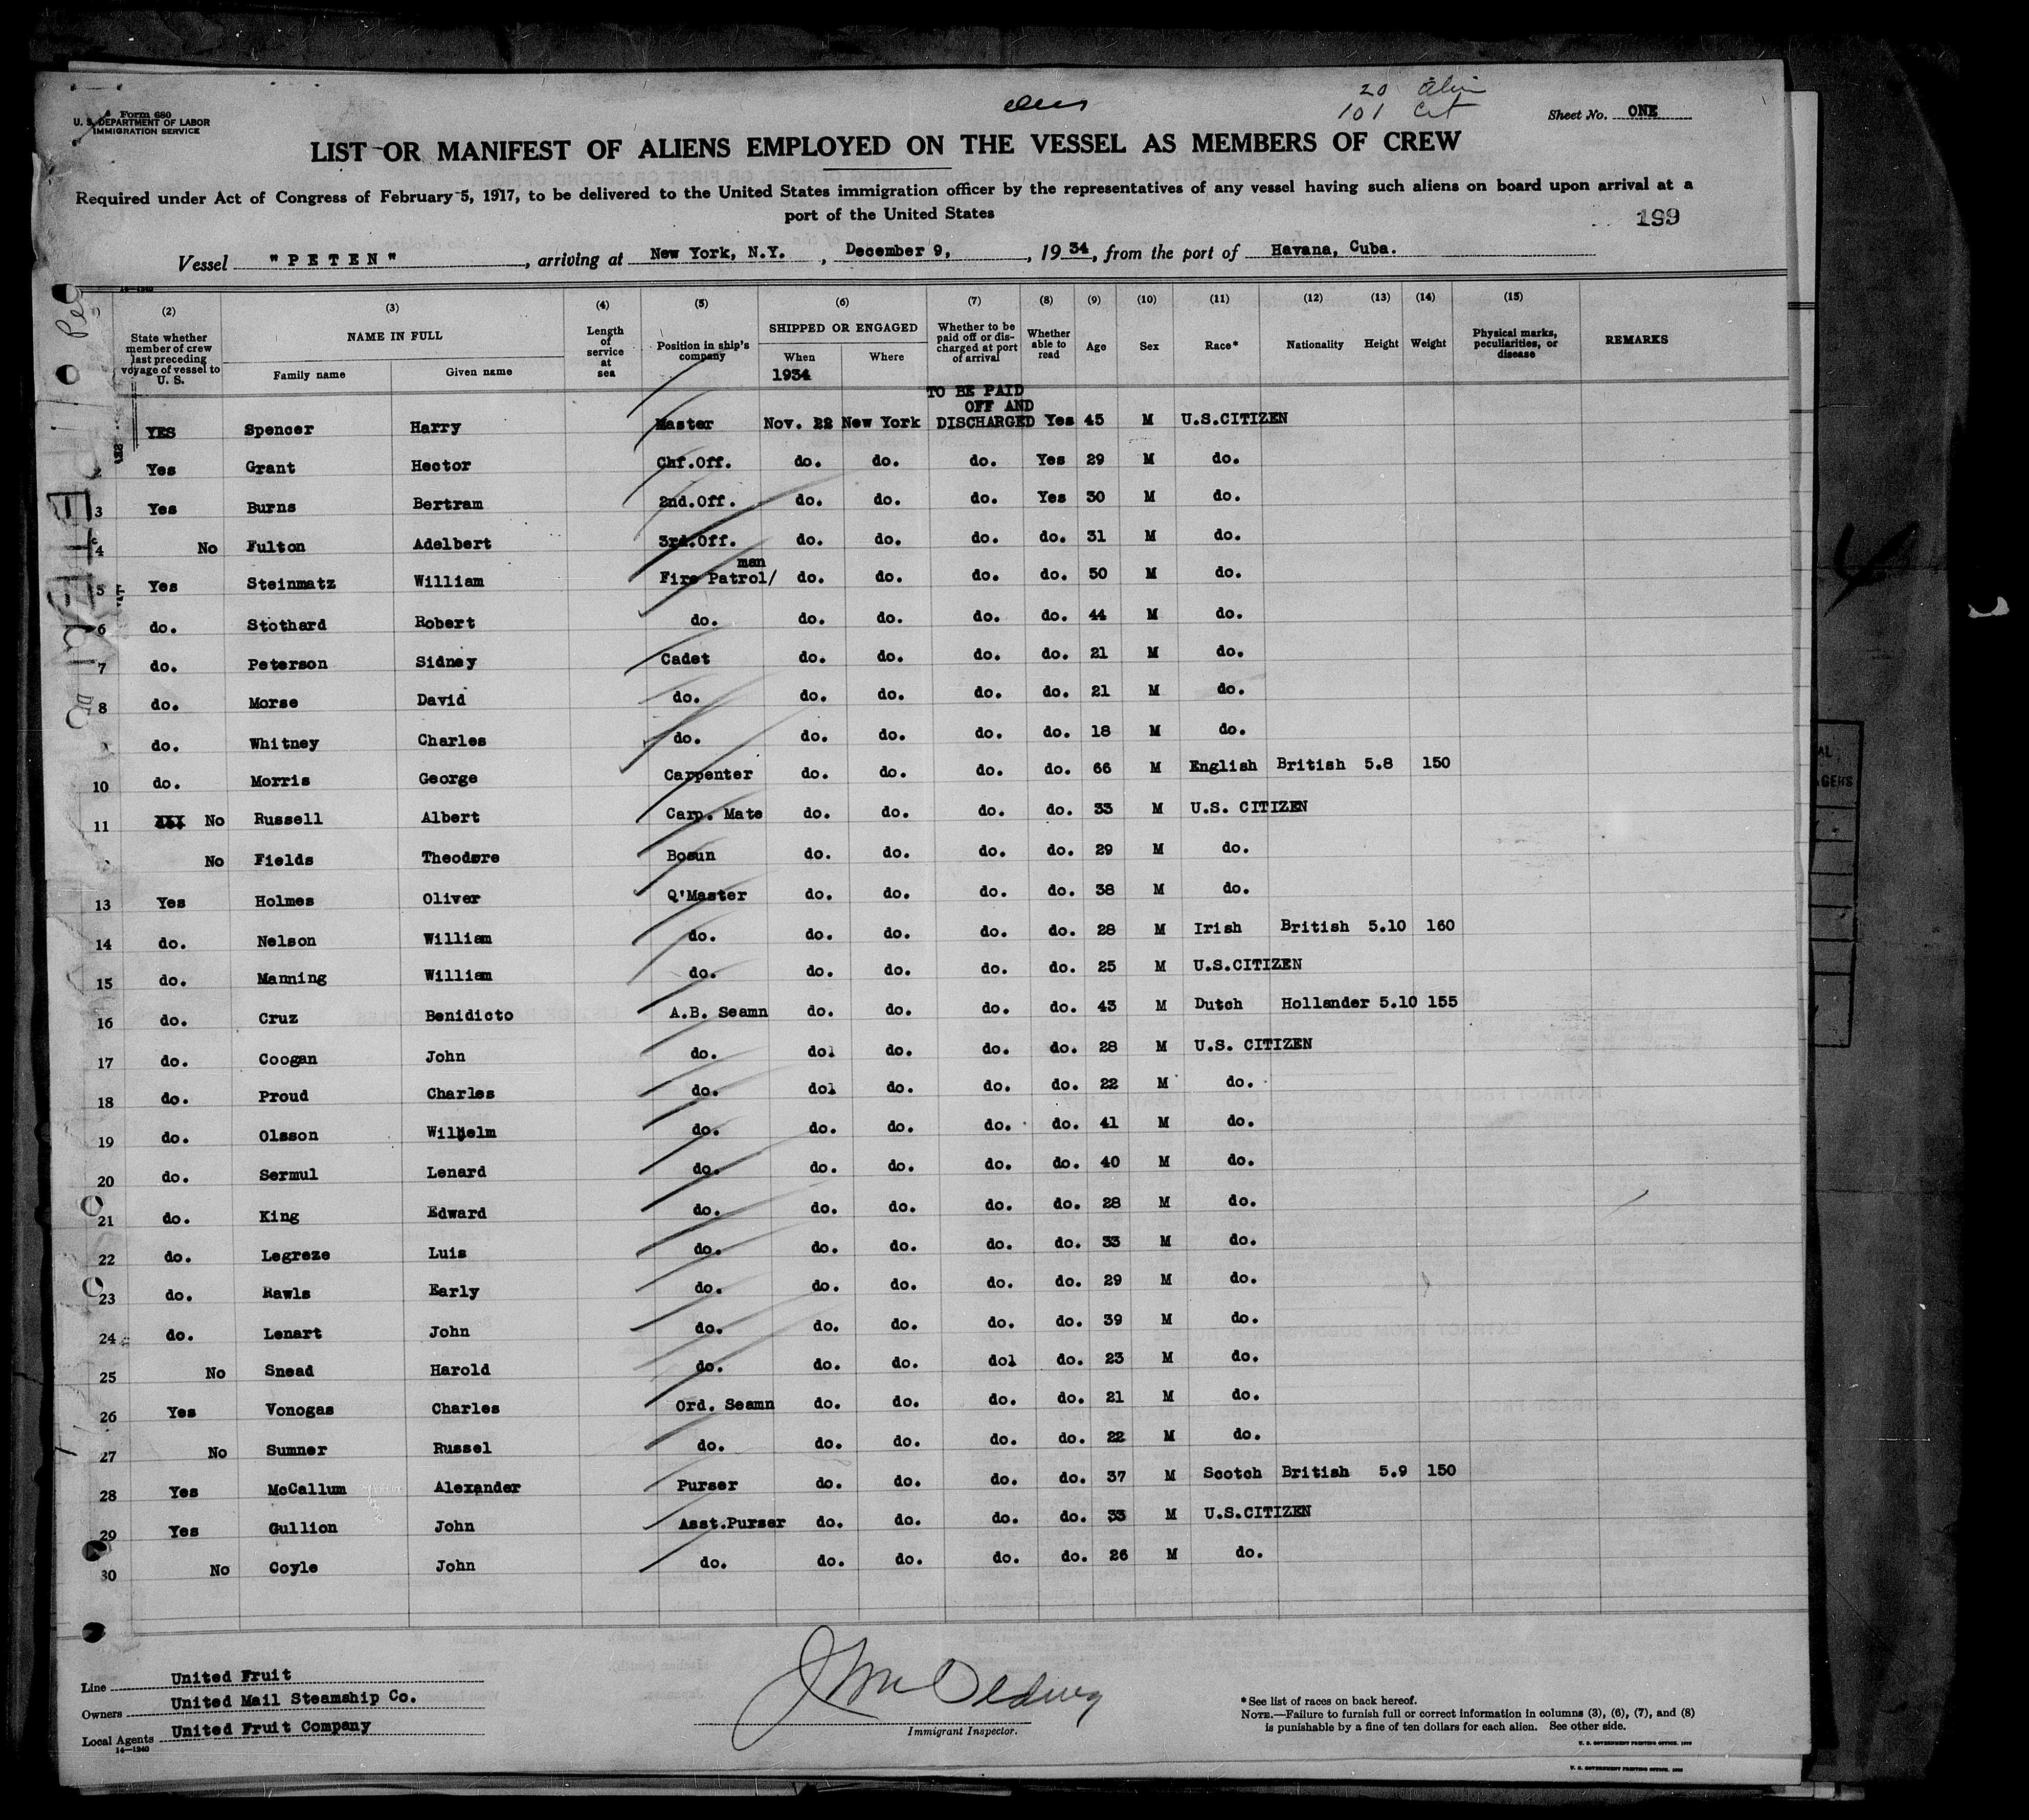 20 alien
101 Cit
Form 680
U. S. DEPARTMENT OF LABOR
IMMIGRATION SERVICE
Sheet No. ONE
LIST OR MANIFEST OF ALIENS EMPLOYED ON THE VESSEL AS MEMBERS OF CREW
Required under Act of Congress of February 5, 1917, to be delivered to the United States immigration officer by the representatives of any vessel having such aliens on board upon arrival at a
port of the United States
199
Vessel "PETEN", arriving at New York, N.Y., December 9, 1934, from the port of Havana, Cuba.
(2) (3) (4) (5) (6) (7) (8) (9) (10) (11) (12) (13) (14) (15)
State whether member of crew last preceding voyage of vessel to U. S. NAME IN FULL Family name Given name Length of service at sea Position in ship's company SHIPPED OR ENGAGED When Where Whether to be paid off or discharged at port of arrival Whether able to read Age Sex Race* Nationality Height Weight Physical marks, peculiarities, or disease REMARKS
1934
TO BE PAID
OFF AND
YES Spencer Harry Master Nov. 22 New York DISCHARGED Yes 45 M U.S.CITIZEN
2 Yes Grant Hector Chf.Off. do. do. do. Yes 29 M do.
3 Yes Burns Bertram 2nd.Off. do. do. do. Yes 30 M do.
4 No Fulton Adelbert 3rd.Off. do. do. do. do. 31 M do.
man
5 Yes Steinmatz William Fire Patrol/ do. do. do. do. 50 M do.
6 do. Stothard Robert do. do. do. do. do. 44 M do.
7 do. Peterson Sidney Cadet do. do. do. do. 21 M do.
8 do. Morse David do. do. do. do. do. 21 M do.
do. Whitney Charles do. do. do. do. do. 18 M do.
10 do. Morris George Carpenter do. do. do. do. 66 M English British 5.8 150
11 No Russell Albert Carp. Mate do. do. do. do. 33 M U.S. CITIZEN
No Fields Theodore Bosun do. do. do. do. 29 M do.
13 Yes Holmes Oliver Q'Master do. do. do. do. 38 M do.
14 do. Nelson William do. do. do. do. do. 28 M Irish British 5.10 160
15 do. Manning William do. do. do. do. do. 25 M U.S.CITIZEN
16 do. Cruz Benidicto A.B. Seamn do. do. do. do. 43 M Dutch Hollander 5.10 155
17 do. Coogan John do. dol do. do. do. 28 M U.S. CITIZEN
18 do. Proud Charles do. dol do. do. do. 22 M do.
19 do. Olsson Wilhelm do. do. do. do. do. 41 M do.
20 do. Sermul Lenard do. do. do. do. do. 40 M do.
21 do. King Edward do. do. do. do. do. 28 M do.
22 do. Legreze Luis do. do. do. do. do. 33 M do.
23 do. Rawls Early do. do. do. do. do. 29 M do.
24 do. Lenart John do. do. do. do. do. 39 M do.
25 No Snead Harold do. do. do. dol do. 23 M do.
26 Yes Vonogas Charles Ord. Seamn do. do. do. do. 21 M do.
27 No Sumner Russel do. do. do. do. do. 22 M do.
28 Yes McCallum Alexander Purser do. do. do. do. 37 M Scotch British 5.9 150
29 Yes Gullion John Asst.Purser do. do. do. do. 33 M U.S.CITIZEN
30 No Coyle John do. do. do. do. do. 26 M do.
Line United Fruit
Owners United Mail Steamship Co.
Local Agents United Fruit Company
14—1240
Immigrant Inspector.
*See list of races on back hereof.
NOTE.—Failure to furnish full or correct information in columns (3), (6), (7), and (8)
is punishable by a fine of ten dollars for each alien. See other side.
U. S. GOVERNMENT PRINTING OFFICE